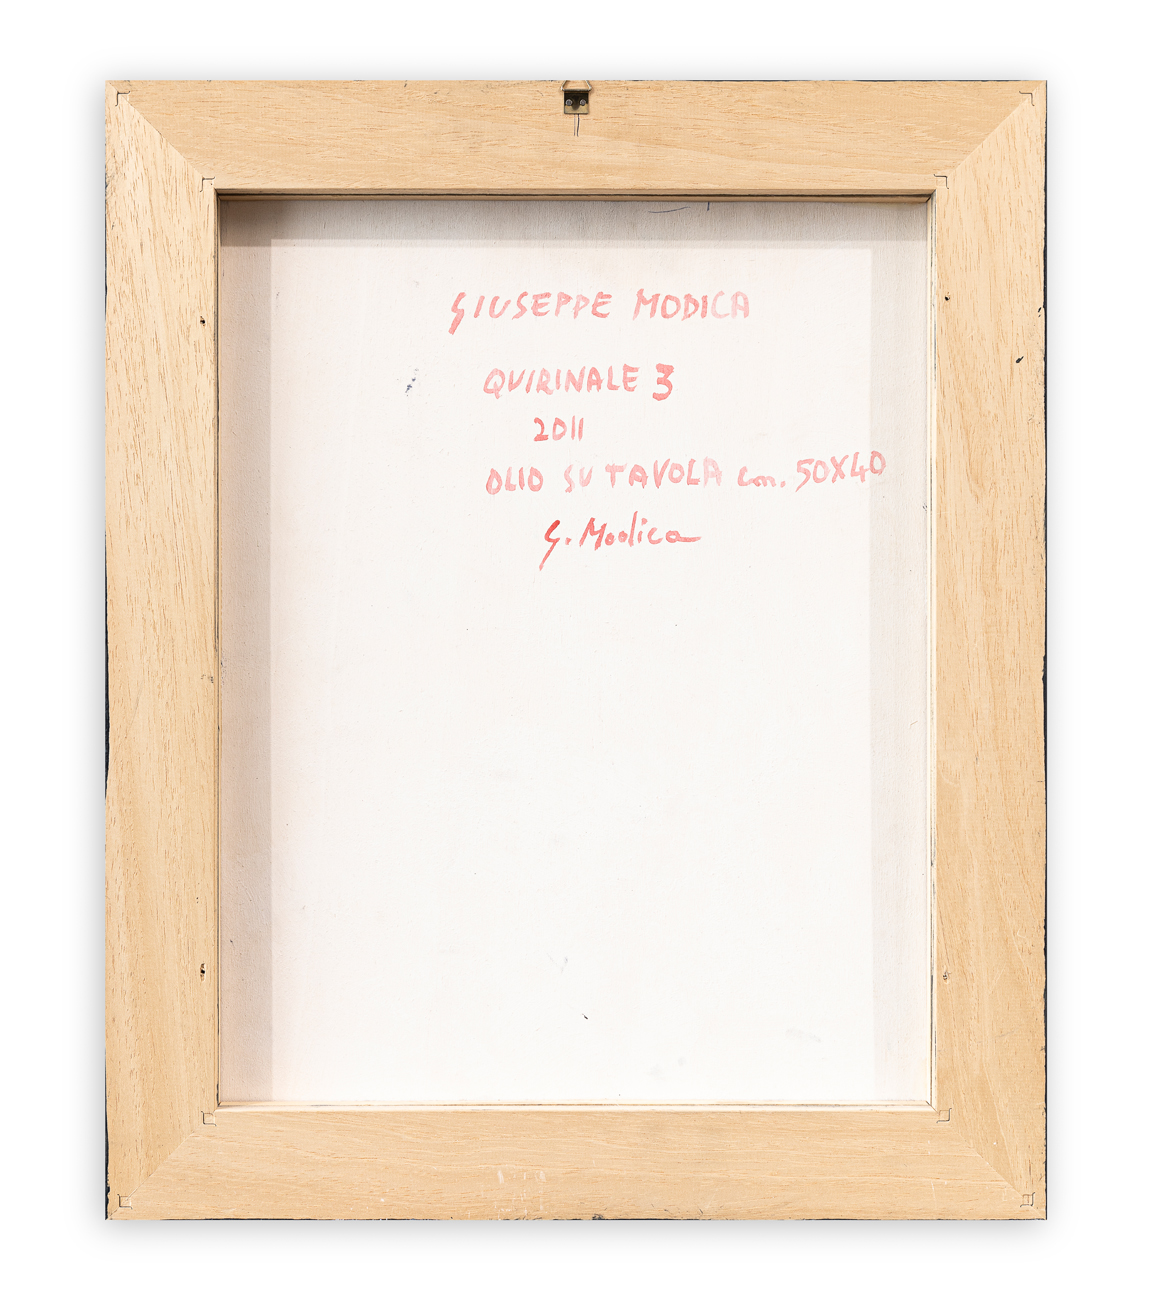 GIUSEPPE MODICA
QUIRINALE 3
2011
OLIO SU TAVOLA cm. 50X40
G. Modica